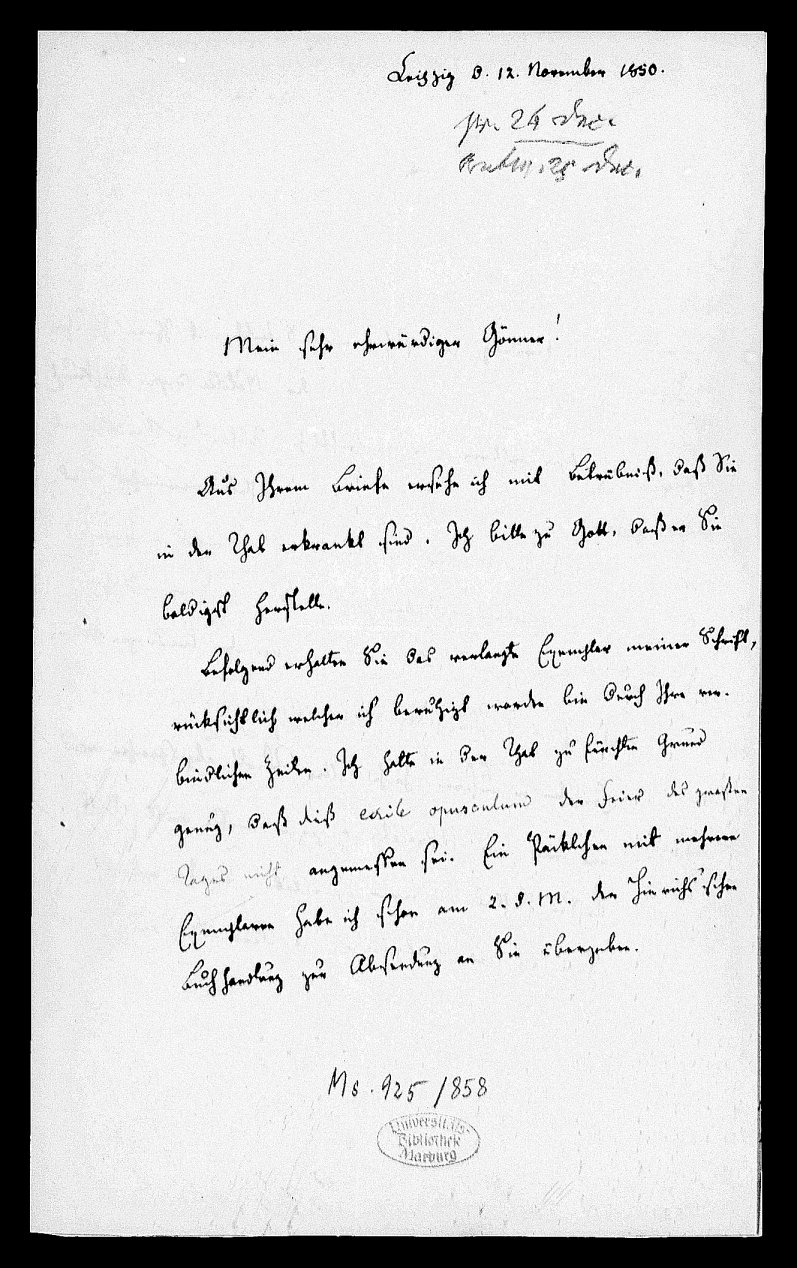 Leipzig d. 12. November 1850.
pr. 24 Dec.
Antw. 28 Dec.
Mein sehr ehrwürdiger Gönner!
Aus Ihrem Briefe ersehe ich mit Betrübniß, daß Sie
in der That erkrankt sind. Ich bitte zu Gott, daß er Sie
baldigst herstelle.
Befolgend erhalten Sie das verlangte Exemplar meiner Schrift,
rücksichtlich welcher ich beruhigt worden bin durch Ihre ver-
bindlichen Zeilen. Ich hatte in der That zu fürchten Grund
genug, daß dieß exile opusculum der Feier des großen
Tages nicht angemessen sei. Ein Päcktchen mit mehreren
Exemplaren habe ich schon am 2. d. M. der Hinrichs'schen
Buchhandlung zur Absendung an Sie übergeben.
Ms. 925/858
Universitäts-
Bibliothek
Marburg